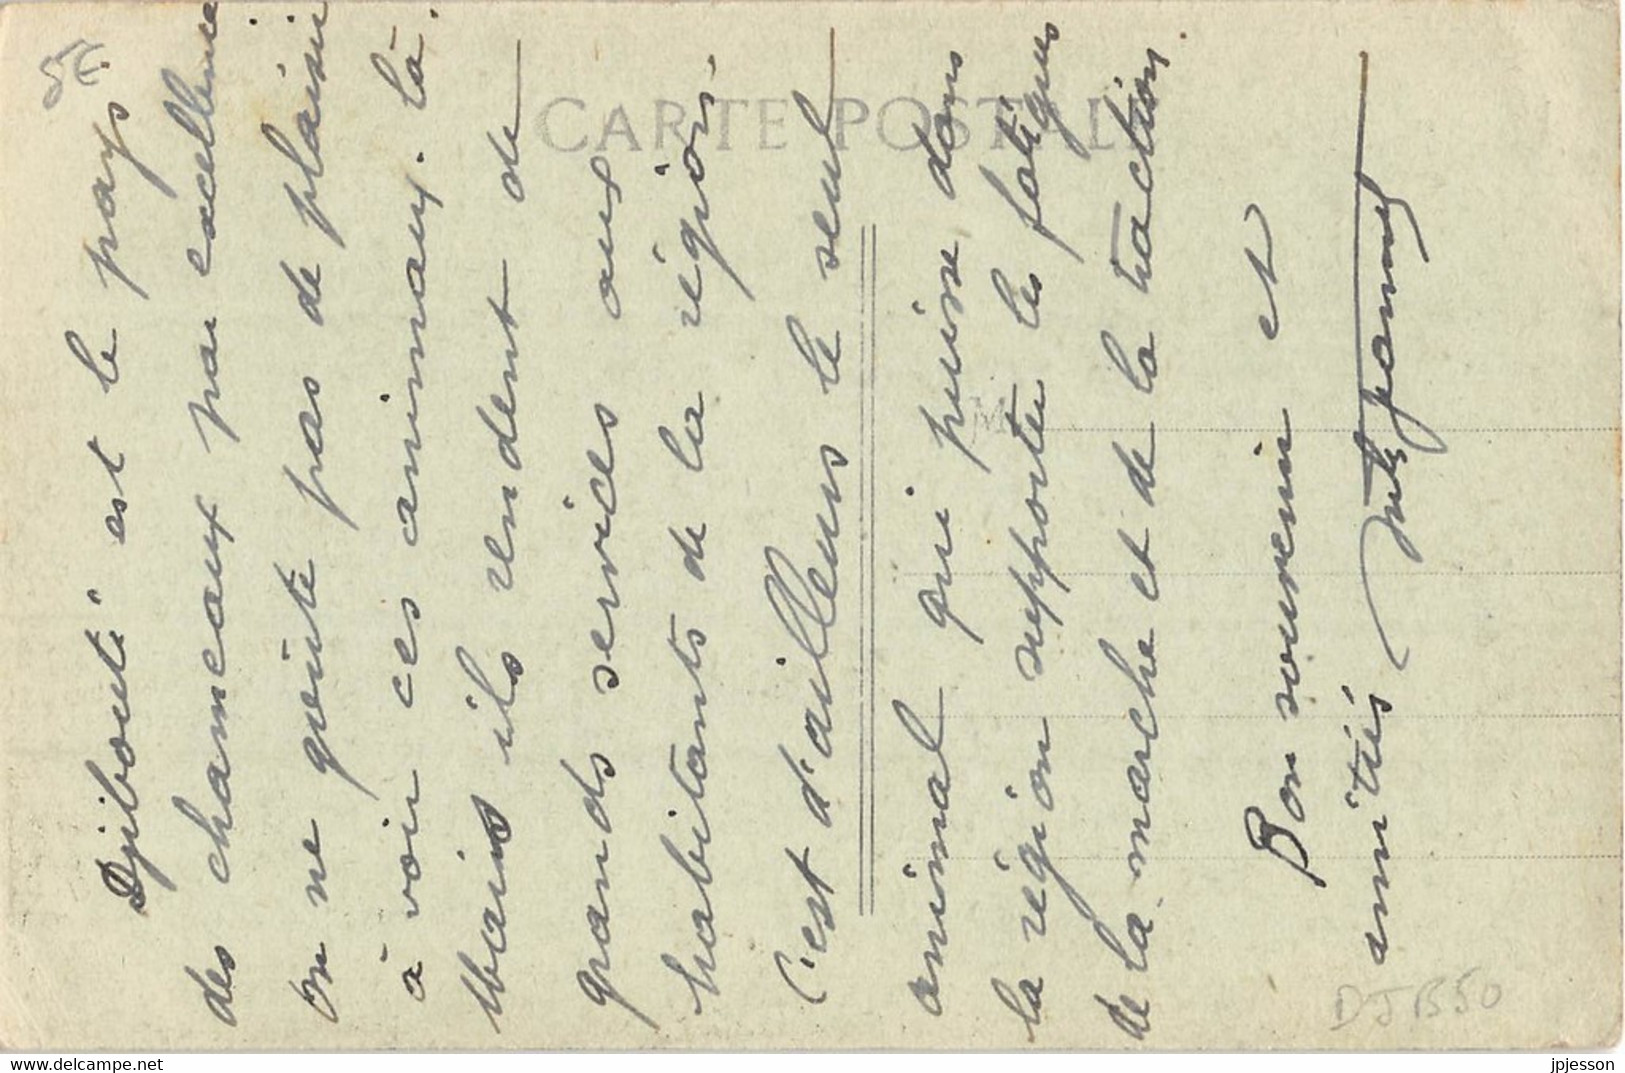 5€
CARTE POSTALE
Djibouti est le pays
des chameaux par excellence
On ne goûte pas de plaisir
à voir ces animaux. là.
Mais ils rendent de
grands services aux
habitants de la région.
C'est d'ailleurs le seul
animal qui puisse dans
la région supporter les fatigues
de la marche et de la traction.
Bon souvenir et
amitiés
M
DJB50
delcampe.net
jpjesson